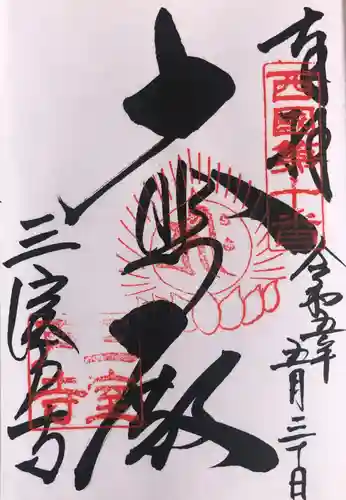 奉拝
西国第十番
令和五年
五月三十日
大悲殿
三室戸寺
三室
戸寺